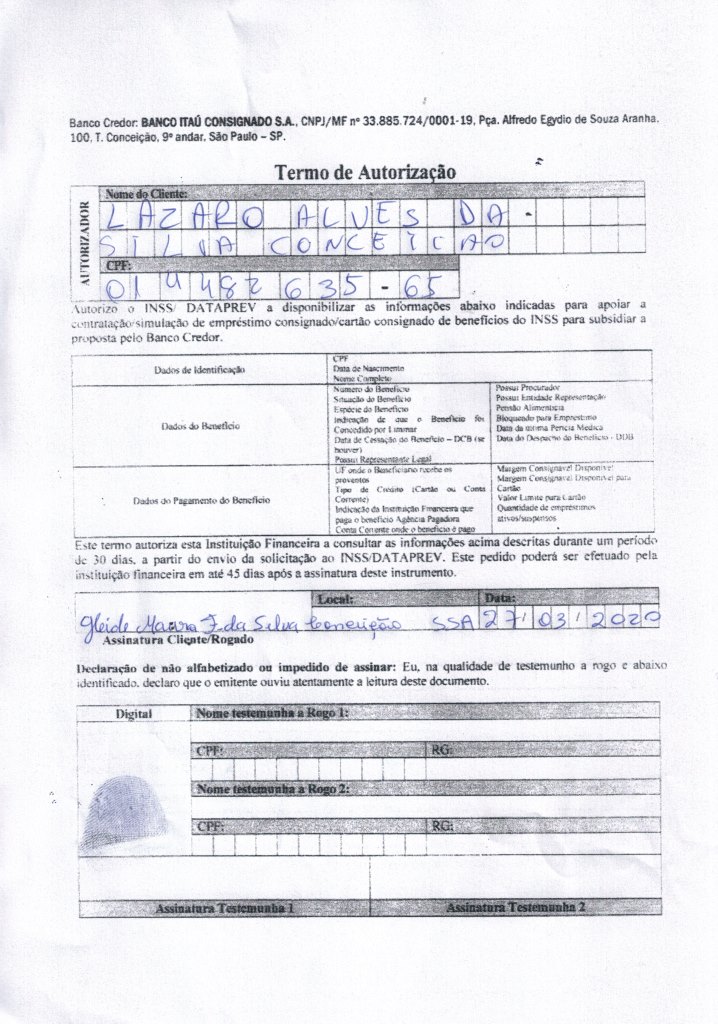 Banco Credor: BANCO ITAÚ CONSIGNADO S.A., CNPJ/MF nº 33.885.724/0001-19, Pça. Alfredo Egydio de Souza Aranha,
100, T. Conceição, 9º andar, São Paulo – SP.
Termo de Autorização
AUTORIZADOR
Nome do Cliente:
LAZARO ALVES DA
SILVA CONCEICAO
CPF:
014482635-65
Autorizo o INSS/ DATAPREV a disponibilizar as informações abaixo indicadas para apoiar a
contratação/simulação de empréstimo consignado/cartão consignado de benefícios do INSS para subsidiar a
proposta pelo Banco Credor.
Dados de Identificação
CPF
Data de Nascimento
Nome Completo
Dados do Benefício
Número do Benefício
Situação do Benefício
Espécie do Benefício
Indicação de que o Benefício foi
Concedido por Liminar
Data de Cessação do Benefício – DCB (se
houver)
Possui Representante Legal
Possui Procurador
Possui Entidade Representação
Pensão Alimentícia
Bloqueado para Empréstimo
Data da última Perícia Médica
Data do Despacho do Benefício - DDB
Dados do Pagamento do Benefício
UF onde o Beneficiário recebe os
proventos
Tipo de Crédito (Cartão ou Conta
Corrente)
Indicação da Instituição Financeira que
paga o benefício Agência Pagadora
Conta Corrente onde o benefício é pago
Margem Consignável Disponível
Margem Consignável Disponível para
Cartão
Valor Limite para Cartão
Quantidade de empréstimos
ativos/suspensos
Este termo autoriza esta Instituição Financeira a consultar as informações acima descritas durante um período
de 30 dias, a partir do envio da solicitação ao INSS/DATAPREV. Este pedido poderá ser efetuado pela
instituição financeira em até 45 dias após a assinatura deste instrumento.
Local: Data:
Gleide Maura F. da Silva Conceição SSA 27/03/2020
Assinatura Cliente/Rogado
Declaração de não alfabetizado ou impedido de assinar: Eu, na qualidade de testemunho a rogo e abaixo
identificado, declaro que o emitente ouviu atentamente a leitura deste documento.
Digital
Nome testemunha a Rogo 1:
CPF: RG:
Nome testemunha a Rogo 2:
CPF: RG:
Assinatura Testemunha 1 Assinatura Testemunha 2